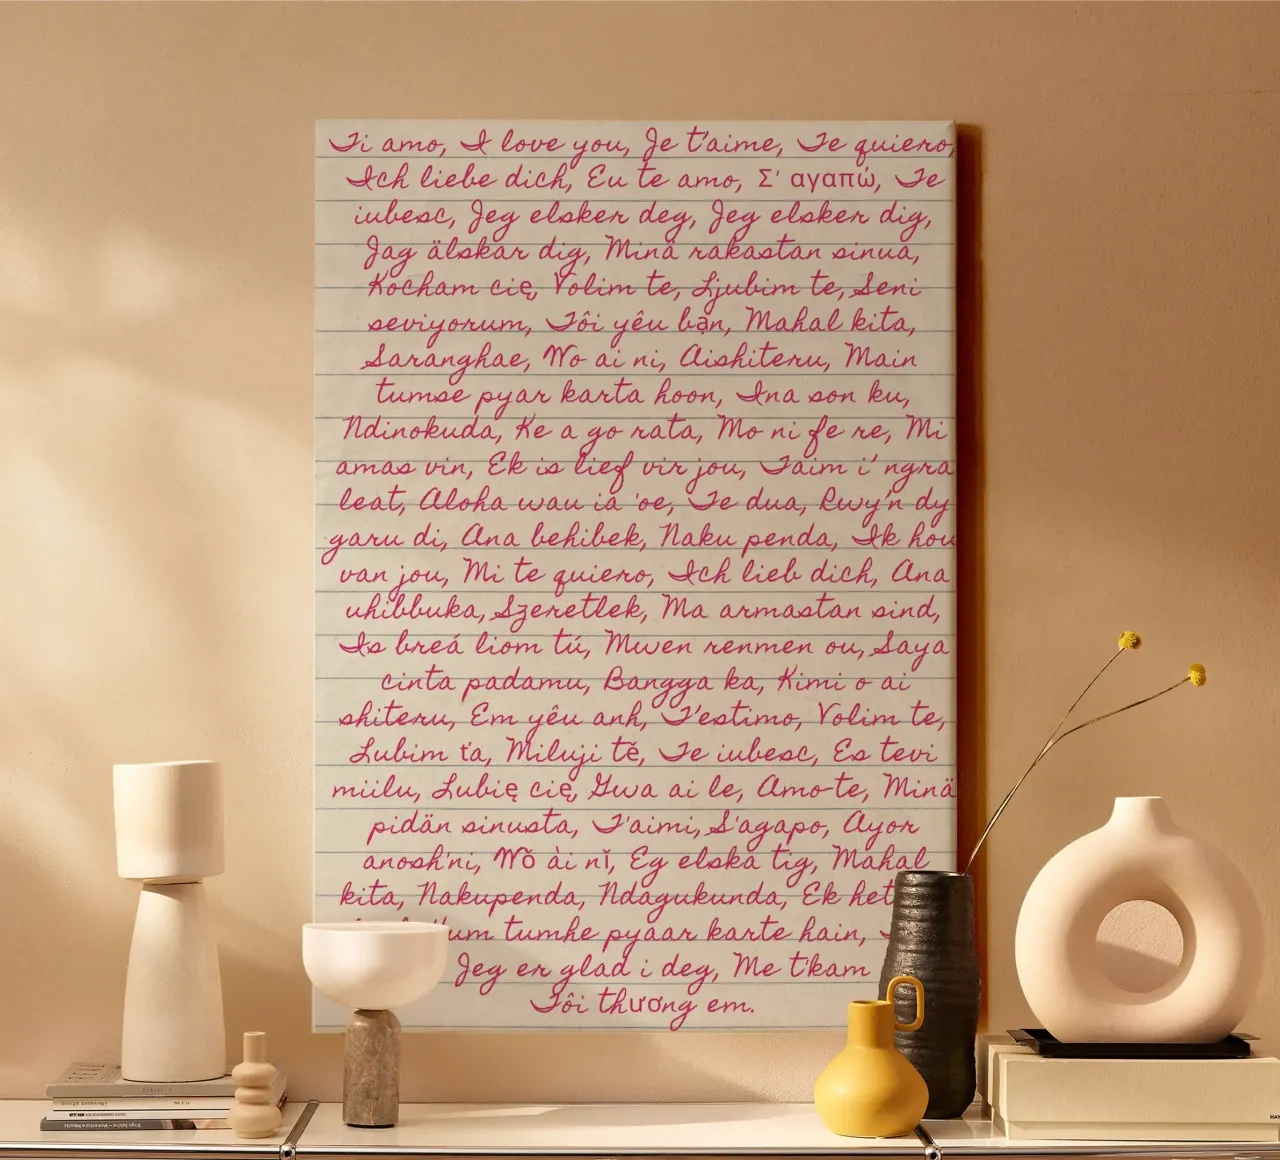 Ti amo, I love you, Je t'aime, Te quiero,
Ich liebe dich, Eu te amo, Σ' αγαπώ, Te
iubesc, Jeg elsker deg, Jeg elsker dig,
Jag älskar dig, Minä rakastan sinua,
Kocham cię, Volim te, Ljubim te, Seni
seviyorum, Tôi yêu bạn, Mahal kita,
Saranghae, Wo ai ni, Aishiteru, Main
tumse pyar karta hoon, Ina son ku,
Ndinokuda, Ke a go rata, Mo ni fe re, Mi
amas vin, Ek is lief vir jou, Taim i' ngra
leat, Aloha wau ia 'oe, Te dua, Rwy'n dy
garu di, Ana behibek, Naku penda, Ik hou
van jou, Mi te quiero, Ich lieb dich, Ana
uhibbuka, Szeretlek, Ma armastan sind,
Is breá liom tú, Mwen renmen ou, Saya
cinta padamu, Bangga ka, Kimi o ai
shiteru, Em yêu anh, T'estimo, Volim te,
Lubim ťa, Miluji tě, Te iubesc, Es tevi
miilu, Lubię cię, Gwa ai le, Amo-te, Minä
pidän sinusta, T'aimi, S'agapo, Ayor
anosh'ni, Wǒ ài nǐ, Eg elska tig, Mahal
kita, Nakupenda, Ndagukunda, Ek het
tumhe pyaar karte hain,
Jeg er glad i deg, Me t'kam
Tôi thương em.